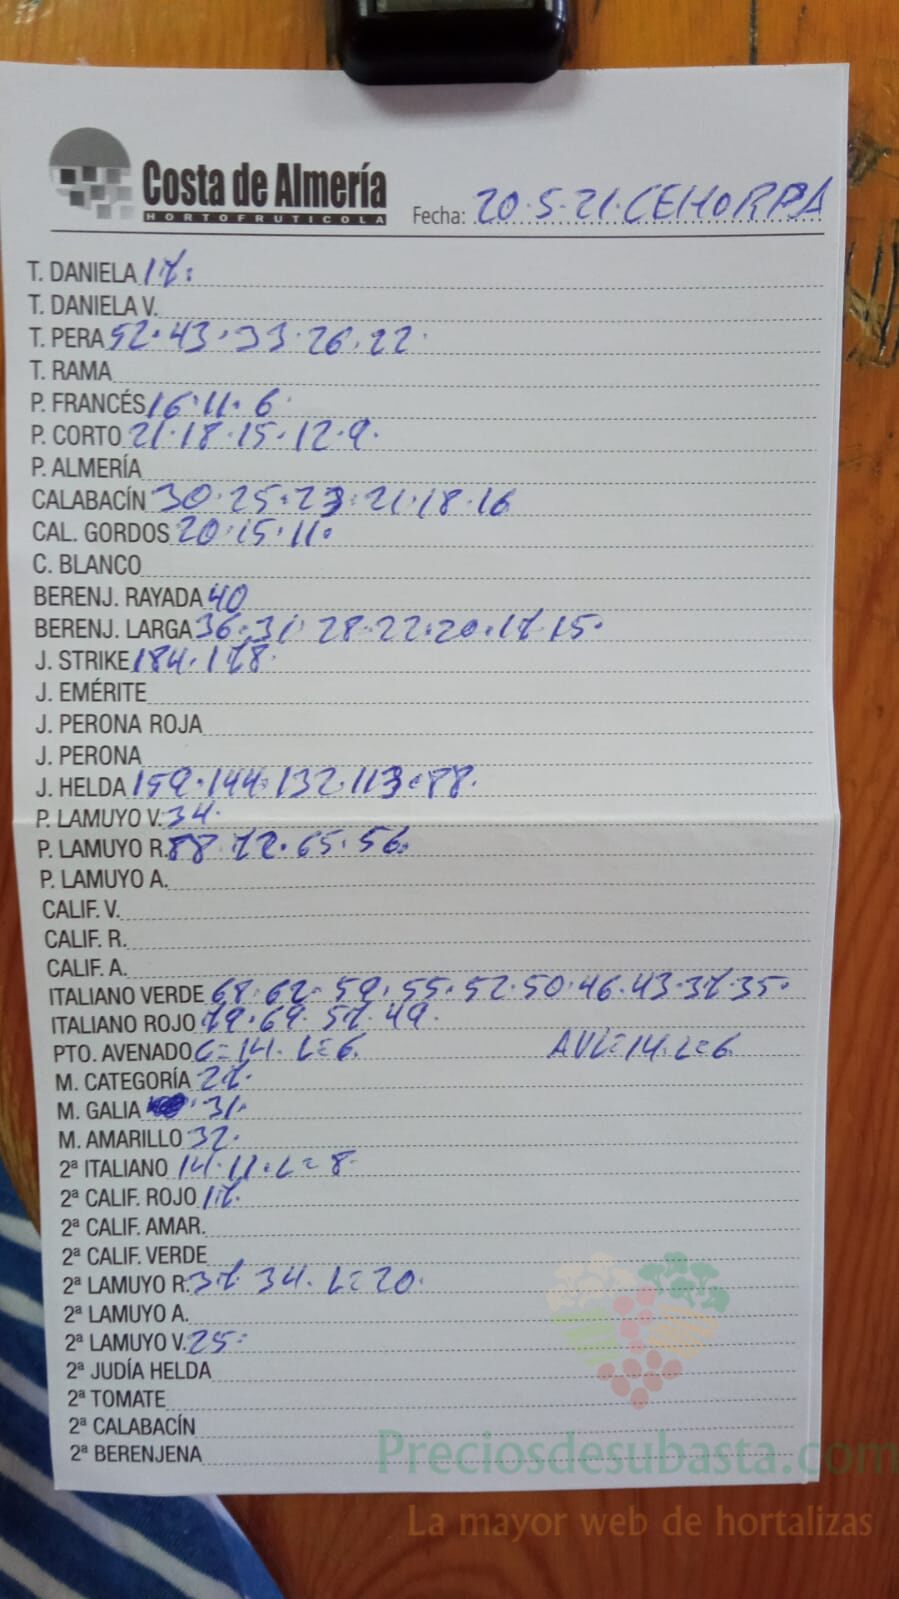 Costa de Almería
HORTOFRUTICOLA
Fecha: 20.5.21.CEHORPA
T. DANIELA 17.
T. DANIELA V.
T. PERA 52.43.33.26.22.
T. RAMA
P. FRANCÉS 16.11.6
P. CORTO 21.18.15.12.9.
P. ALMERÍA
CALABACÍN 30.25.23.21.18.16
CAL. GORDOS 20.15.11.
C. BLANCO
BERENJ. RAYADA 40
BERENJ. LARGA 36.31 28.22.20.17.15.
J. STRIKE 184.178.
J. EMÉRITE
J. PERONA ROJA
J. PERONA
J. HELDA 159.144.132.113.88.
P. LAMUYO V. 34.
P. LAMUYO R. 88.72.65.56.
P. LAMUYO A.
CALIF. V.
CALIF. R.
CALIF. A.
ITALIANO VERDE 68.62.59.55.52.50.46.43.37.35.
ITALIANO ROJO 79.69.57.49.
PTO. AVENADO C=14. L=6. AVL=14.L=6.
M. CATEGORÍA 27.
M. GALIA 31.
M. AMARILLO 32.
2ª ITALIANO 14.11.L=8.
2ª CALIF. ROJO 17.
2ª CALIF. AMAR.
2ª CALIF. VERDE
2ª LAMUYO R. 37 34. L=20.
2ª LAMUYO A.
2ª LAMUYO V. 25.
2ª JUDÍA HELDA
2ª TOMATE
2ª CALABACÍN
2ª BERENJENA
Preciosdesubasta.com
La mayor web de hortalizas